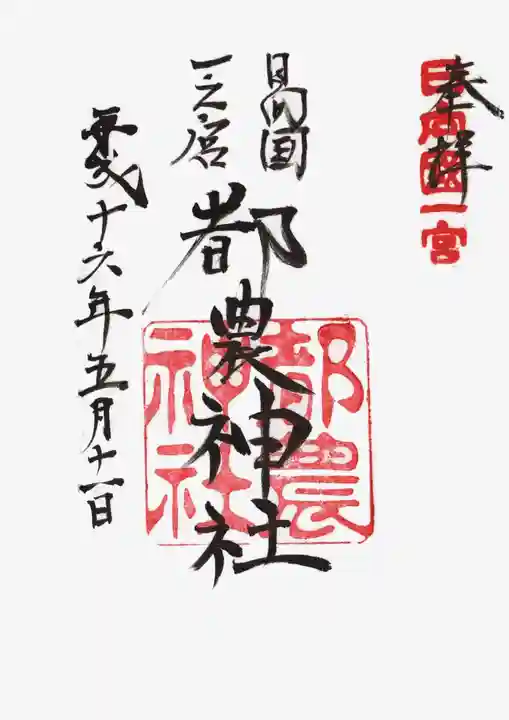 奉拝
日向国一宮
日向国
一之宮
都農神社
都農神社
平成十六年五月十一日